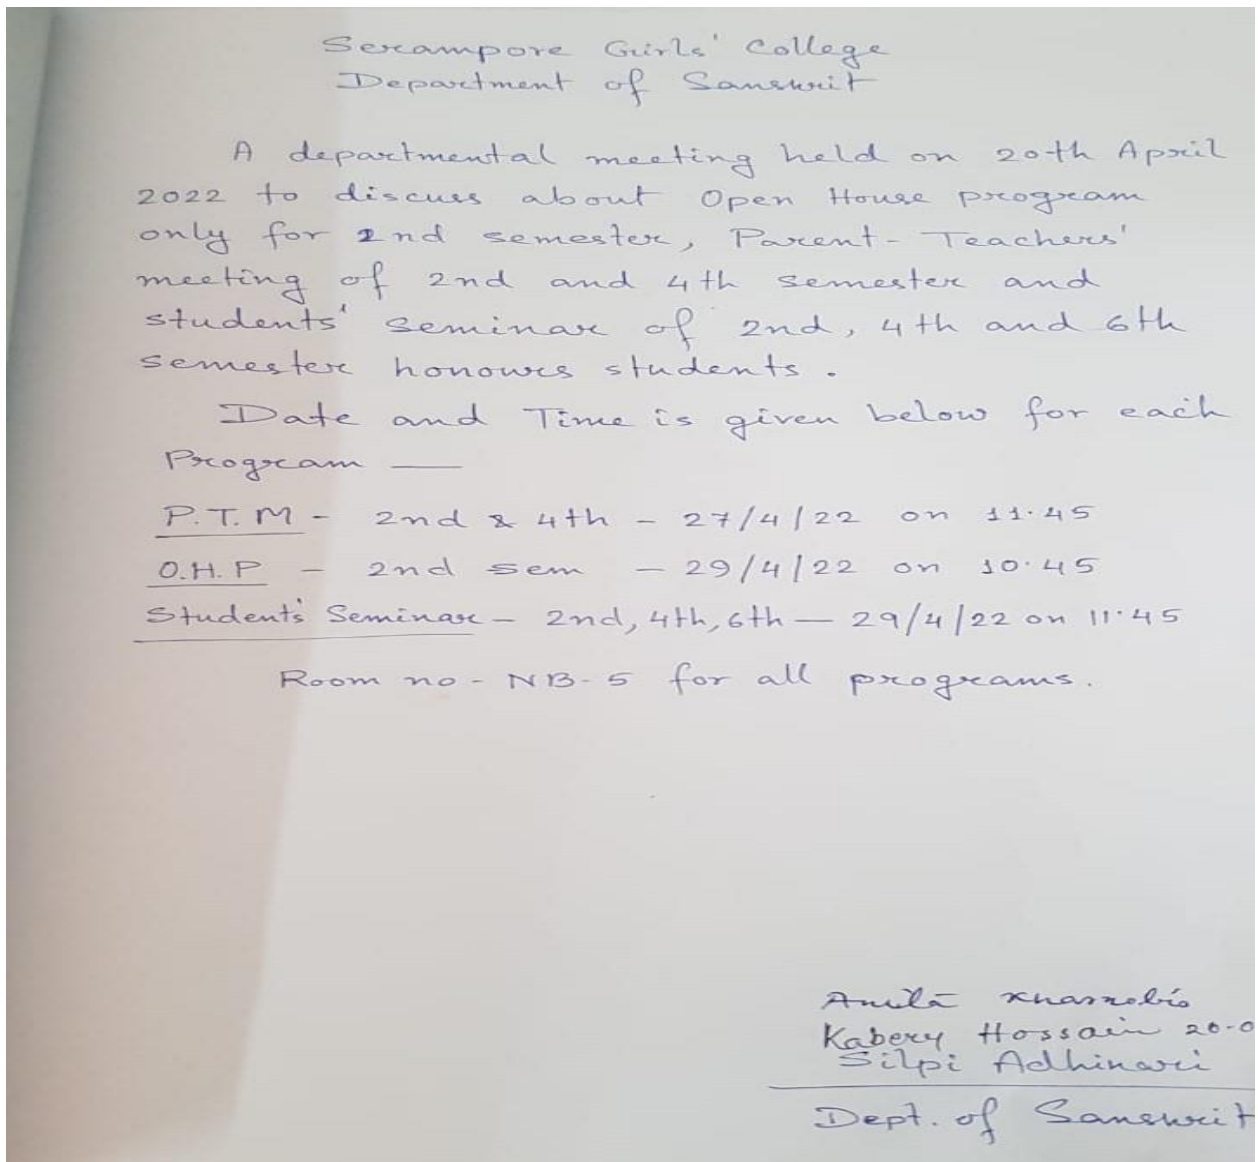 Serampore Girls' College
Department of Sanskrit
A departmental meeting held on 20th April
2022 to discuss about Open House program
only for 2nd semester, Parent-Teachers'
meeting of 2nd and 4th semester and
students' seminar of 2nd, 4th and 6th
semester honours students.
Date and Time is given below for each
Program —
P.T.M - 2nd & 4th - 27/4/22 on 11.45
O.H.P - 2nd sem - 29/4/22 on 10.45
Student's Seminar - 2nd, 4th, 6th — 29/4/22 on 11.45
Room no - NB-5 for all programs.
Kabery Hossain 20-0
Silpi Adhikari
Dept. of Sanskrit